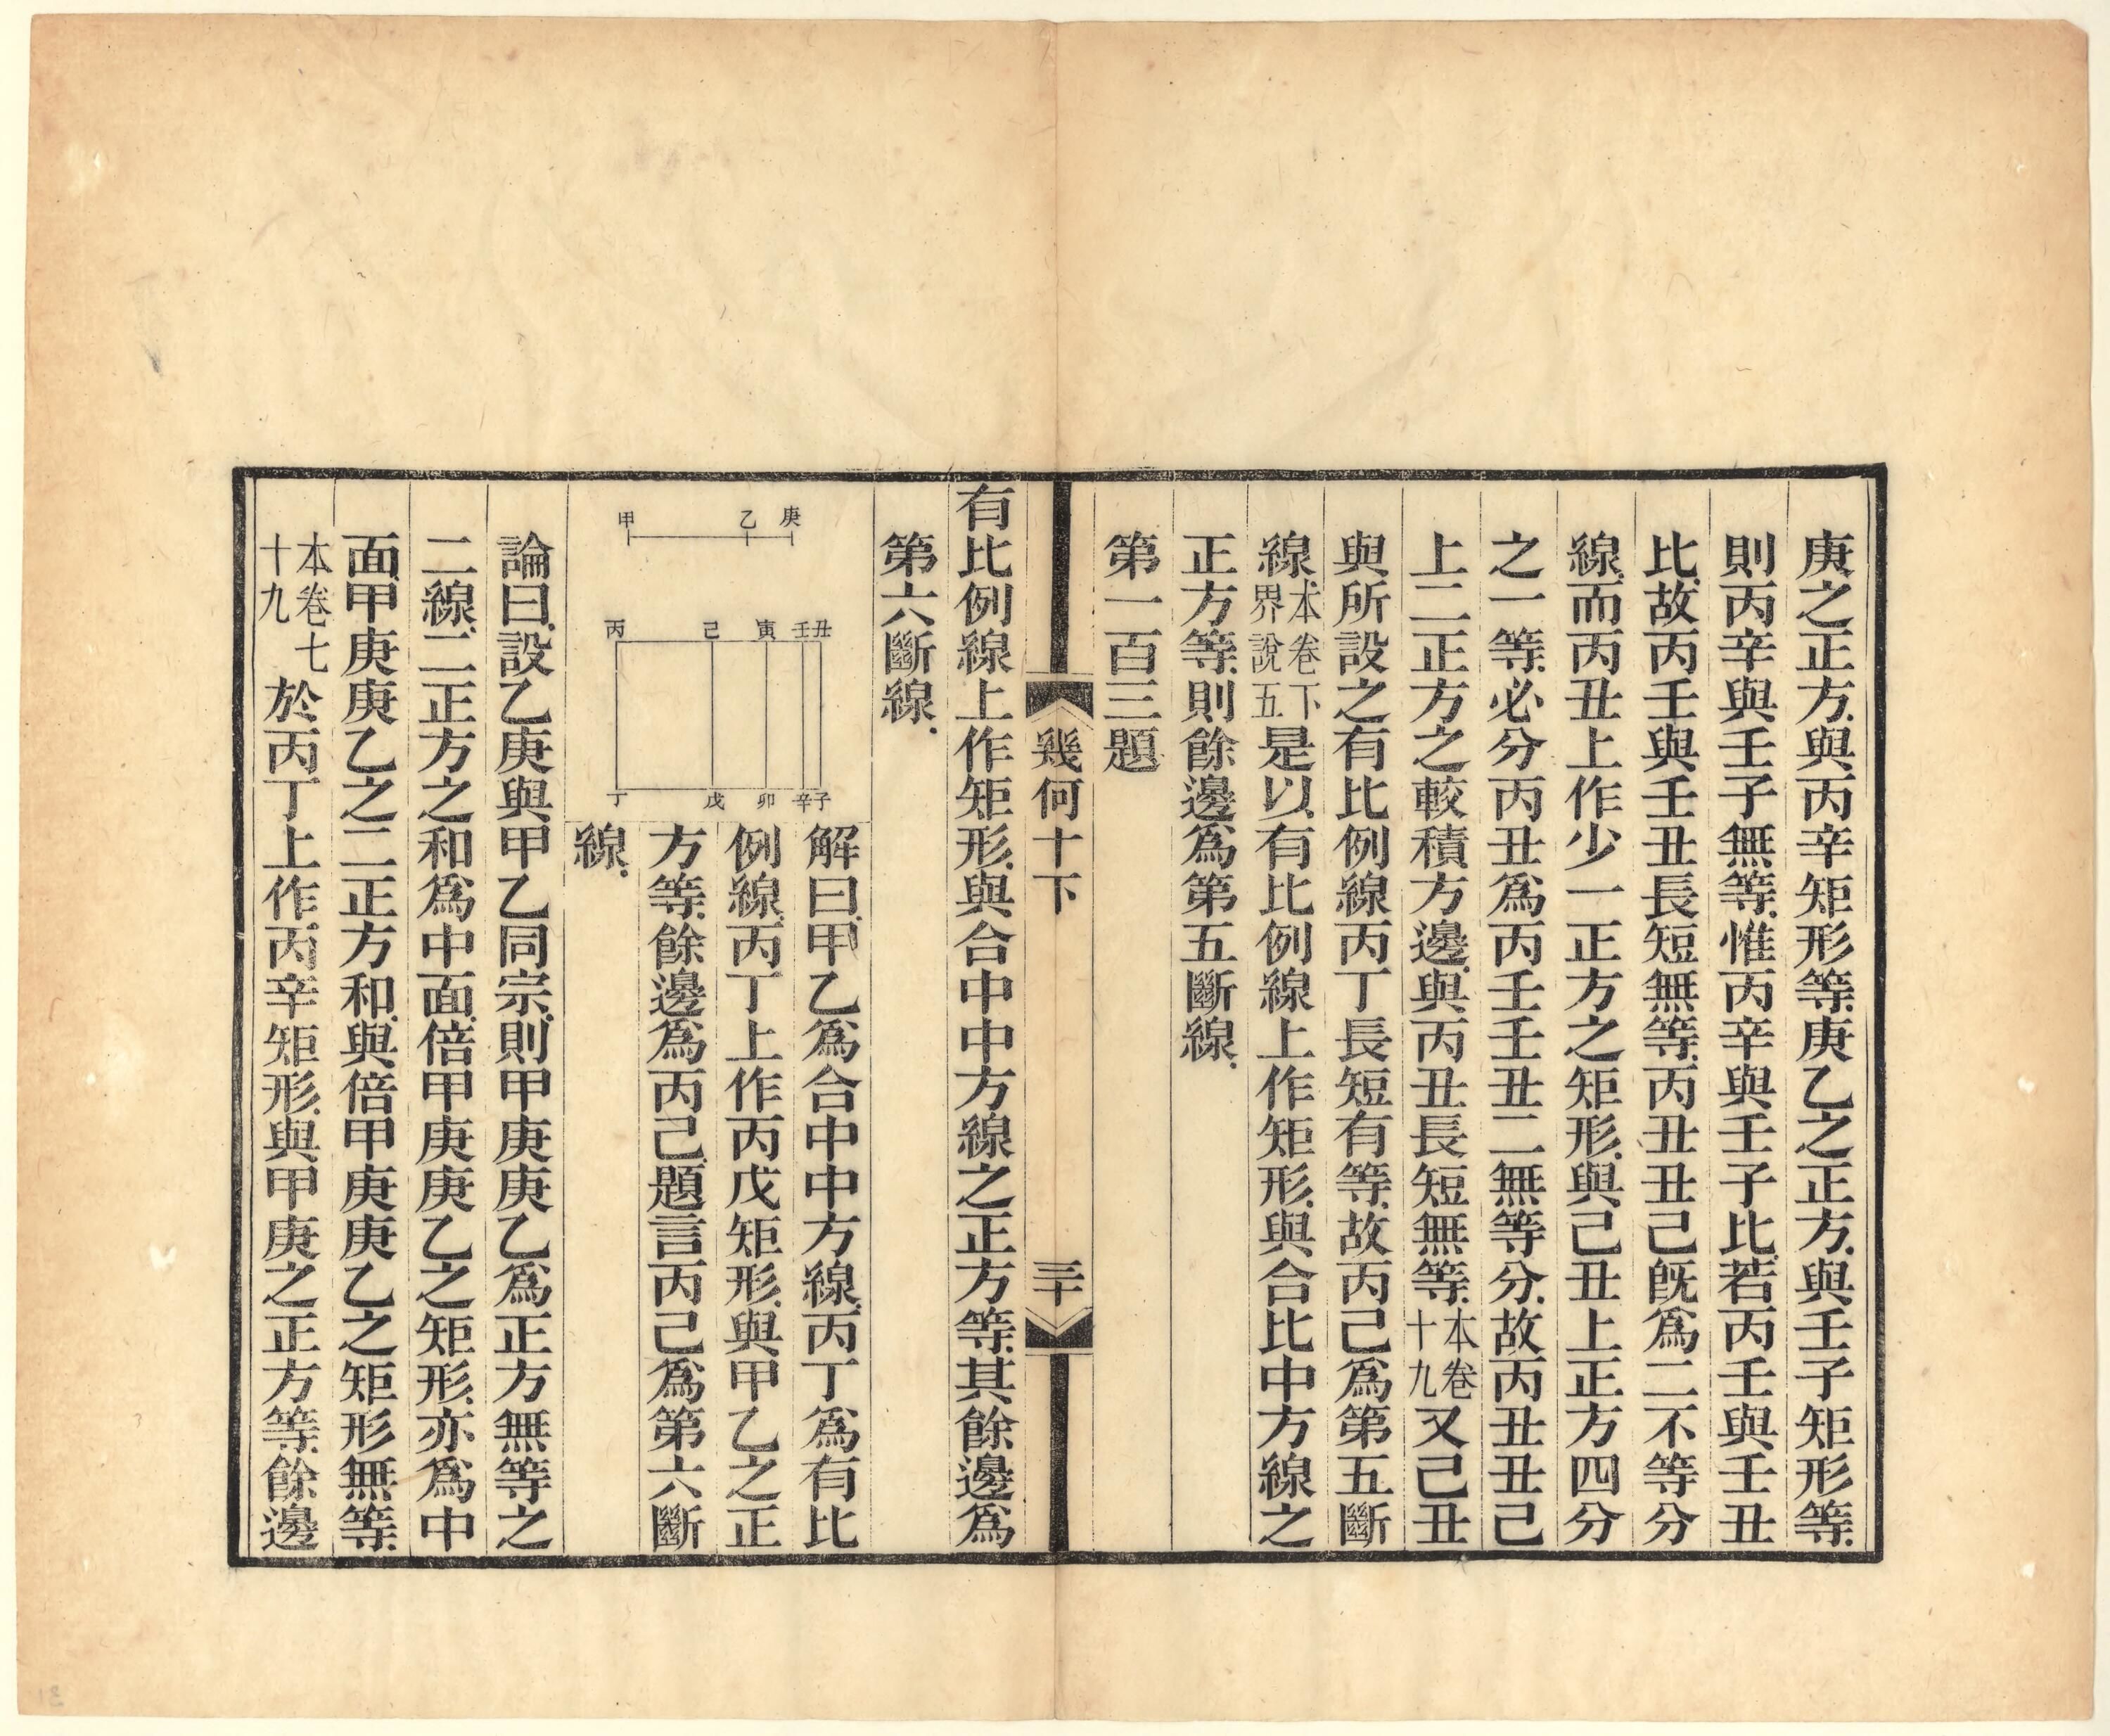 庚之正方與丙辛矩形等庚乙之正方與壬子矩形等
則丙辛與壬子無等惟丙辛與壬子比若丙壬與壬丑
比故丙壬與壬丑長短無等丙丑丑己旣爲二不等分
線而丙丑上作少一正方之矩形與己丑上正方四分
之一等必分丙丑爲丙壬壬丑二無等分故丙丑丑己
上二正方之較積方邊與丙丑長短無等本卷十九又己丑
與所設之有比例線丙丁長短有等故丙己爲第五斷
線本卷下界說五是以有比例線上作矩形與合比中方線之
正方等則餘邊爲第五斷線
第一百三題
幾何十下
三十
有比例線上作矩形與合中中方線之正方等其餘邊爲
第六斷線
甲 乙 庚
丙 己 寅 壬 丑
丁 戊 卯 辛 子
解曰甲乙爲合中中方線丙丁爲有比
例線丙丁上作丙戊矩形與甲乙之正
方等餘邊爲丙己題言丙己爲第六斷
線
論曰設乙庚與甲乙同宗則甲庚庚乙爲正方無等之
二線二正方之和爲中面倍甲庚庚乙之矩形亦爲中
面甲庚庚乙之二正方和與倍甲庚庚乙之矩形無等
本卷七十九於丙丁上作丙辛矩形與甲庚之正方等餘邊